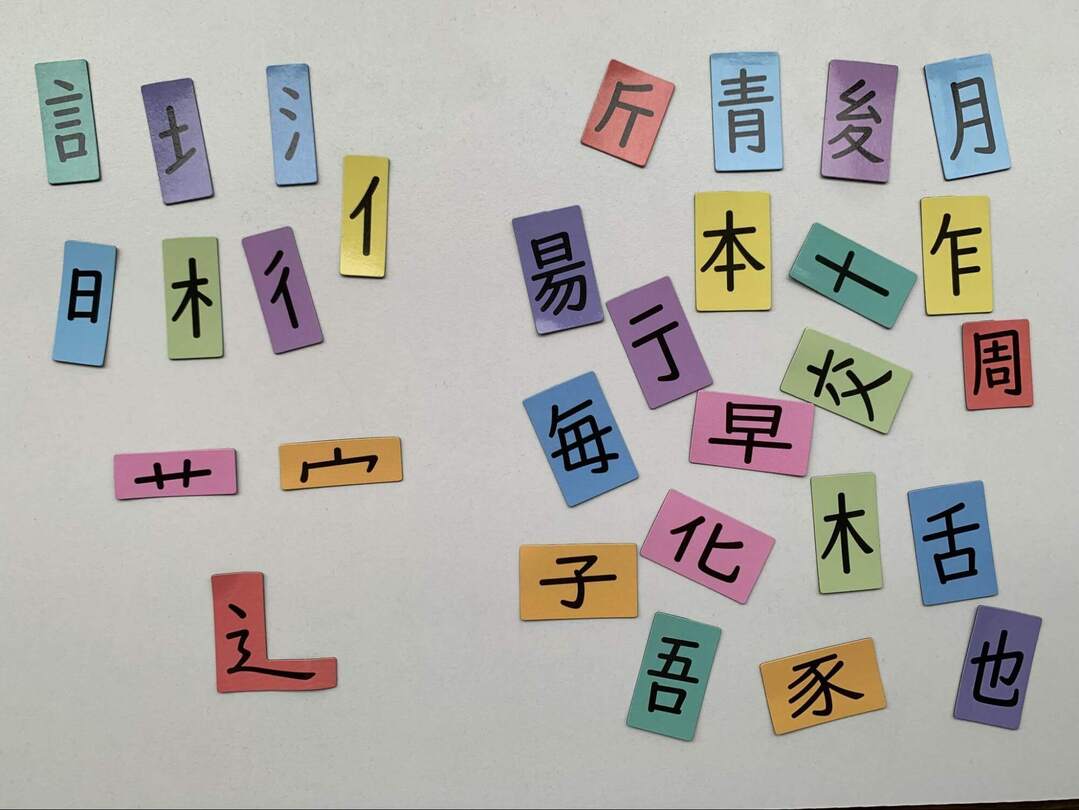 訁 土 氵 亻
日 木 彳
艹 宀
辶
斤 青 夋 月
昜 本 十 乍
亍 交 周
毎 早
子 化 木 舌
吾 豕 也